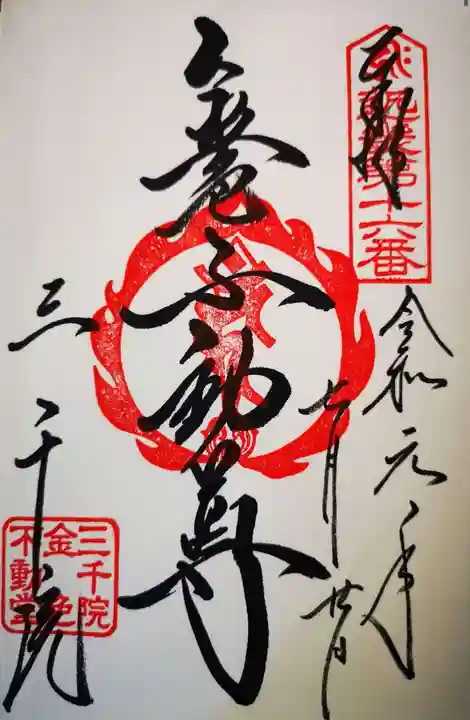 奉拝
近畿三十六不動尊第十六番
令和元年
七月廿日
金色不動尊
三千院
三千院
金色
不動堂